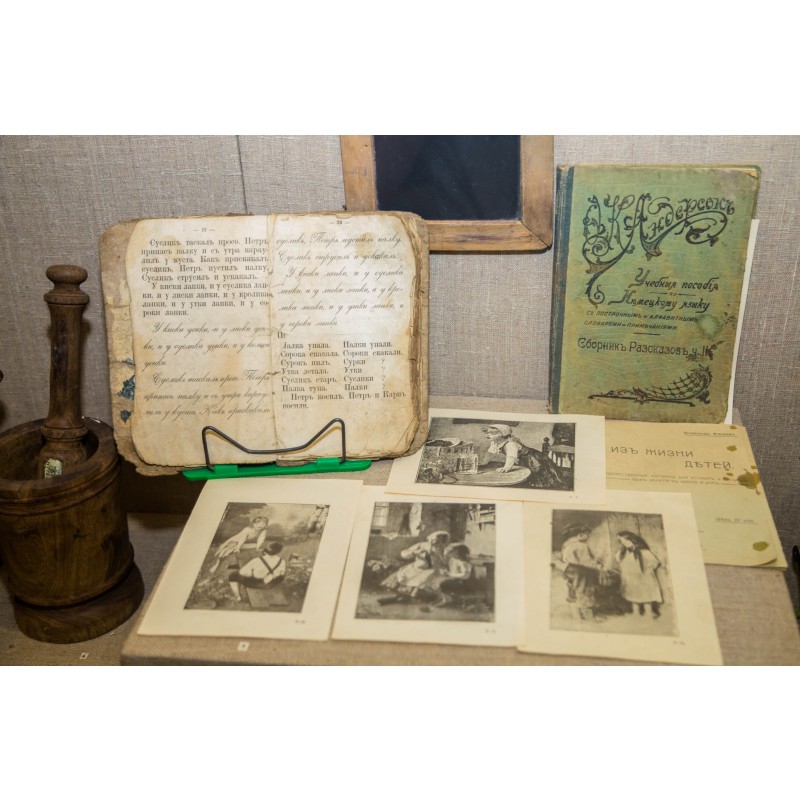 — 22 —
Сусликъ таскалъ просо. Петръ
принесъ палку и съ утра карау-
лилъ у куста. Какъ прискакалъ
сусликъ, Петръ пустилъ палку.
Сусликъ струсилъ и ускакалъ.
У киски лапки, и у суслика лап-
ки, и у лиски лапки, и у кролика
лапки, и у утки лапки, и у со-
роки лапки.
У киски ушки, и у лиски уш-
ки, и у суслика ушки, и у
ушки.
Сусликъ таскалъ просо. Петръ
принесъ палку и съ утра карау-
лилъ у куста. Какъ прискакалъ
— 23 —
сусликъ, Петръ пустилъ палку.
Сусликъ струсилъ и ускакалъ.
У киски лапки, и у суслика
лапки, и у лиски лапки, и у кро-
лика лапки, и у утки лапки, и
у сороки лапки.
Палка упала. Палки упали.
Сорока скакала. Сороки скакали.
Сурокъ пилъ. Сурки
Утка летала. Утки
Сусликъ старъ. Суслики
Палка тупа. Палки
Петръ косилъ. Петръ и Карпъ
косили.
К. Андерсонъ
Учебныя пособія
по
Нѣмецкому языку
съ построчнымъ и алфавитнымъ
словарями и примѣчаніями.
Сборникъ Разсказовъ ч. II
ИЗЪ ЖИЗНИ
ДѢТЕЙ